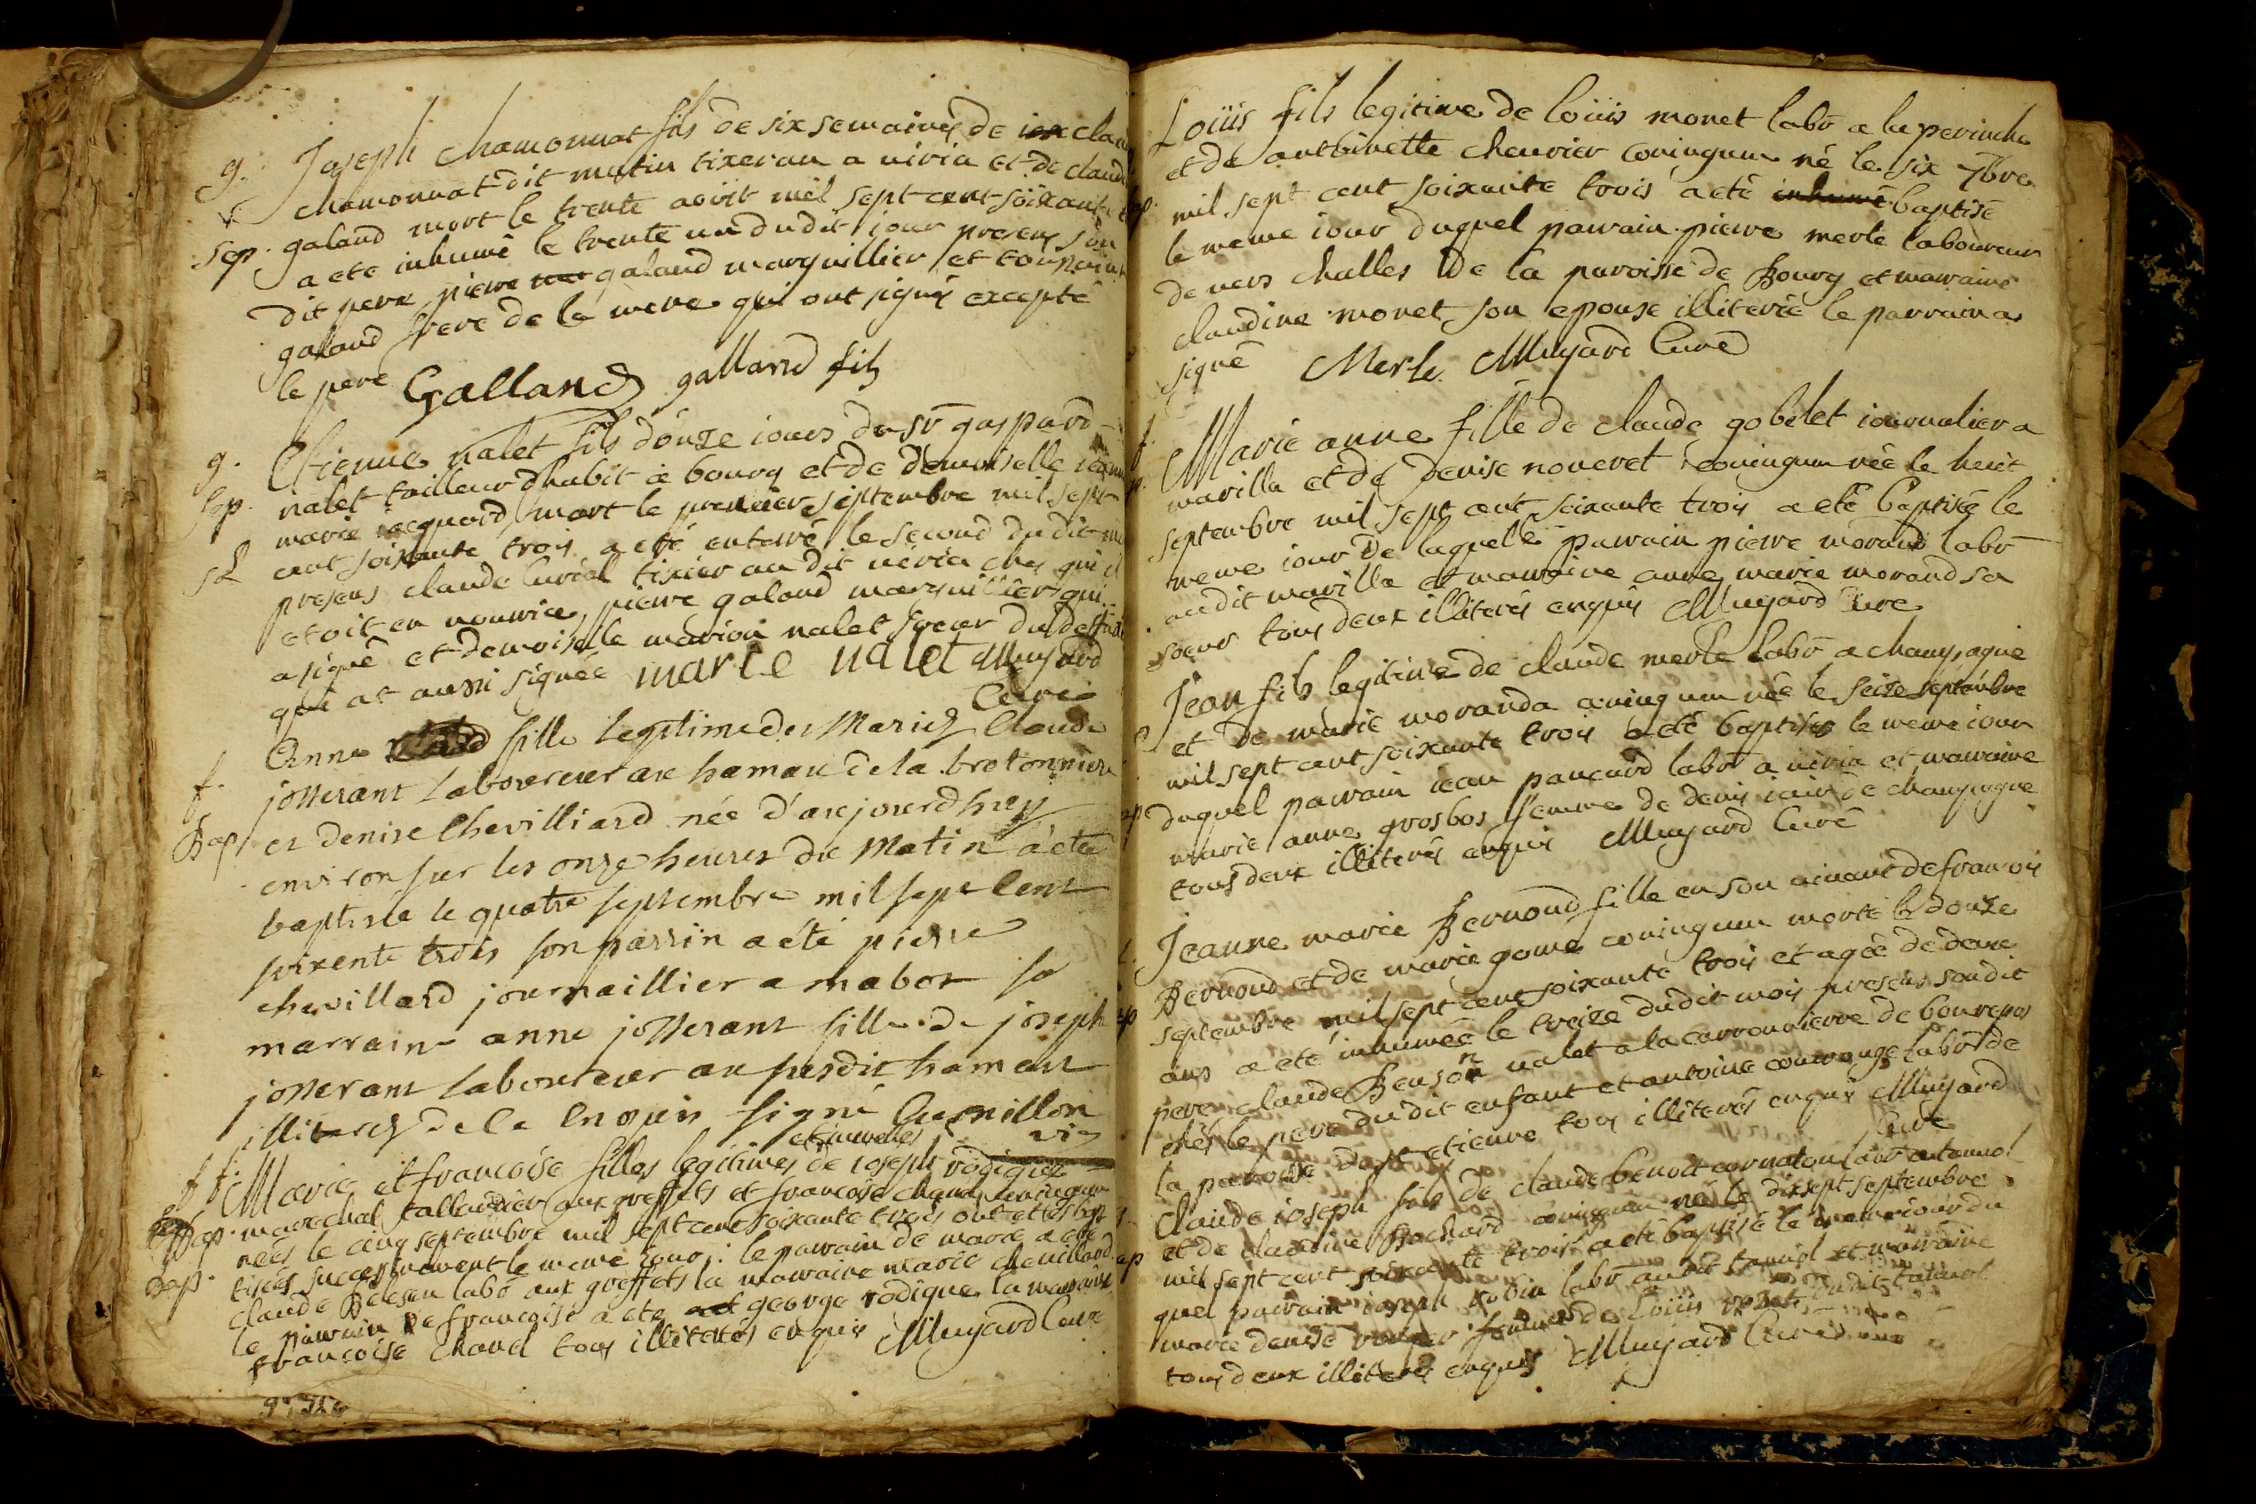 g. Joseph chamonnat fils de six semaines de claude
chamonnat dit matin tixeran a viria et de claudi
sep. galand mort le trente aoút mil sept cent soixante
a eté inhumé le trente un dudit jour presens son
dit pere pierre galand marguillier et
galand frere de la mere qui ont signés excepté
le pere Galland galland fils
g. Etienne nalet fils douze iours du sr gaspard
sep. nalet tailleur d'habit a bourg et de demoiselle
marie iacquard mort le premier septembre mil sept
cent soixante trois a eté enterré le second dudit
presens claude curial tixier audit viria ches qui il
etoit en nourrice, pierre galand marguillier qui
a signé et demoiselle marion nalet soeur du deffunt
qui at aussi signée marie nalet Mugard
Curé
f. Anne fille legitime des Mariez Claude
josserant laboureur au hamau de la brotonniere
Bap et denise Chevilliard née d'aujourdhuy
environ sur les onze heures du Matin a été
baptisée le quatre septembre mil sept Cent
soixente trois son parrin a été pierre
chevillard journaillier a mabon sa
marraine anne josserant fille de joseph
josserant laboureur au susdit hameau
illiterez de ce Enquis signé Cusnillon
et iumelles vic
f f. Marie et francoise filles legitimes de ioseph rodigue
Bap. marechal tallandier aux greffets et francoise chanel coningum
neés le cinq septembre mil sept cent soixante trois ont ettés bap
Bap. tisés successivement le meme iour: le parrain de marie a eté
claude Besson labo aux greffets la marraine marie chevillard
le parrain de francoise a eté george rodigue la marraine
francoise chanel tous illiterés enquis Mugard Curé
Loüis fils legitime de loüis monet labo a la perinche
et de antoinette cheurier coniugum né le six 7bre
mil sept cent soixante trois a eté inhumé baptisé
le meme iour duquel parrain pierre merle laboureur
de vers challes de la paroisse de Bourg et marraine
claudine monet son epouse illiterée le parrain a
signé Merle Mugard Curé
f. Marie anne fille de claude gobelet iournalier a
marilla et de denise noneret coniugum née le huit
septembre mil sept cent soixante trois a eté baptisée le
meme iour de laquelle parrain pierre morand labo
audit marilla et marraine anne marie morand sa
soeur tous deux illiterés enquis Mugard Cure
Jean fils legitime de claude merle labo a champagne
et de marie moranda coniugum née le seize septembre
mil sept cent soixante trois a eté baptisés le meme iour
duquel parrain iean pancard labo a viria et marraine
marie anne grosbos femme de denis de champagne
tous deux illiterés enquis Mugard Curé
Jeanne marie Bernoud fille en son vivant de francois
Bernoud et de marie gome coniugum morte le douze
septembre mil sept cent soixante trois et ageé de deux
ans a eté inhumeé le treize dudit mois presens son dit
pere claude Benson nalet a la carronnierre de bourepos
chès le pere dudit enfant et antoine labo de
la paroisse de st etienne tous illiterés enquis Mugard
Curé
Claude ioseph fils de claude benoit cornaton labo a tanuol
et de claudine Bochard coniugum né le dixsept septembre
mil sept cent soixante trois a eté baptisé le meme iour du
quel parrain ioseph Robin labo audit tanuol et marraine
marie denise femme de Loüis dudit tanuol
tous deux illiterés enquis Mugard Curé